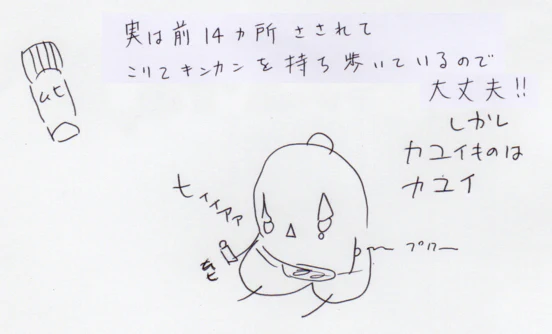 実は前14ヵ所さされて
こりてキンカンを持ち歩いているので
大丈夫!!
しかし
カユイものは
カユイ
ヒィィァァ
プワー